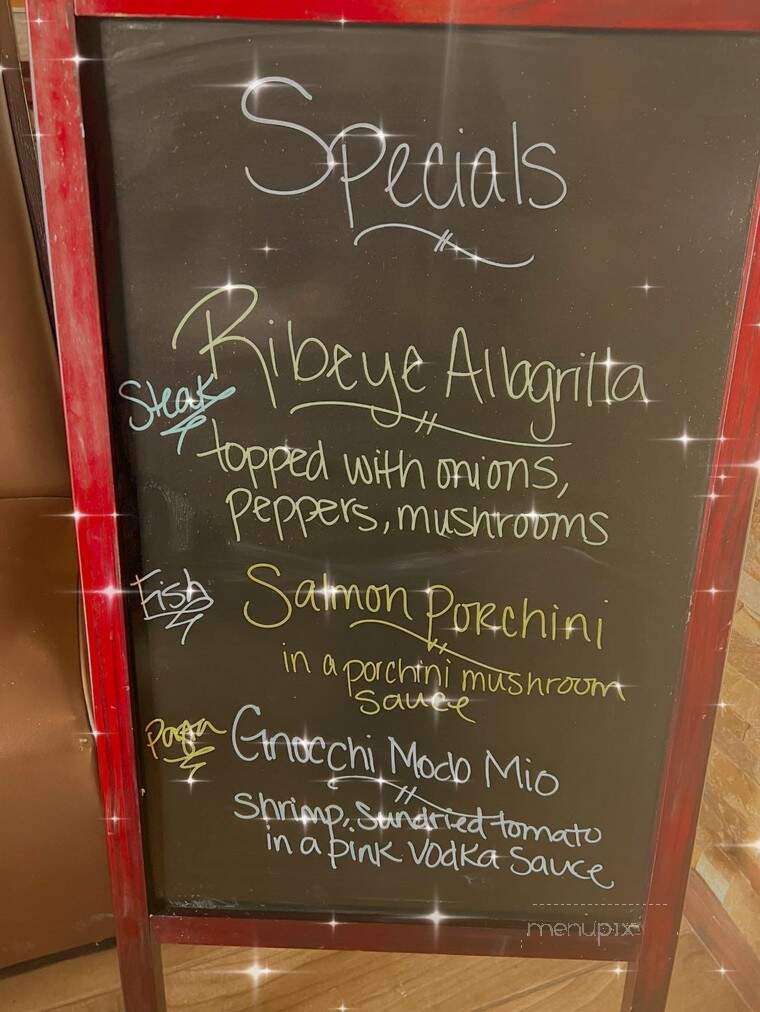 Specials
Ribeye Allagrilla
Steak
topped with onions,
peppers, mushrooms
Fish
Salmon Porchini
in a porchini mushroom
sauce
Pasta
Gnocchi Modo Mio
Shrimp, Sundried tomato
in a pink vodka sauce
menupix